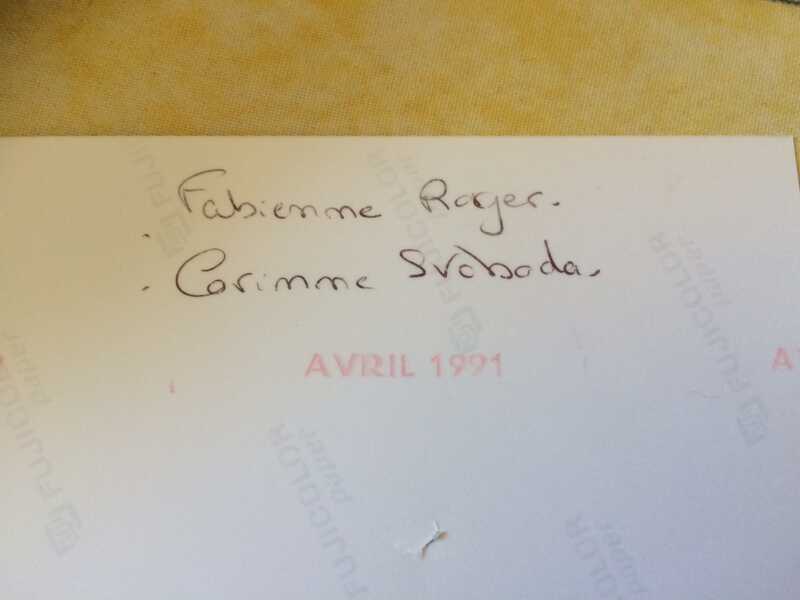 Fabienne Roger.
. Corinne Svoboda.
AVRIL 1991
A
FUJICOLOR paper
FUJICOLOR paper
FUJICOLOR paper
FUJICOLOR paper
FUJICOLOR paper
FUJICOLOR paper